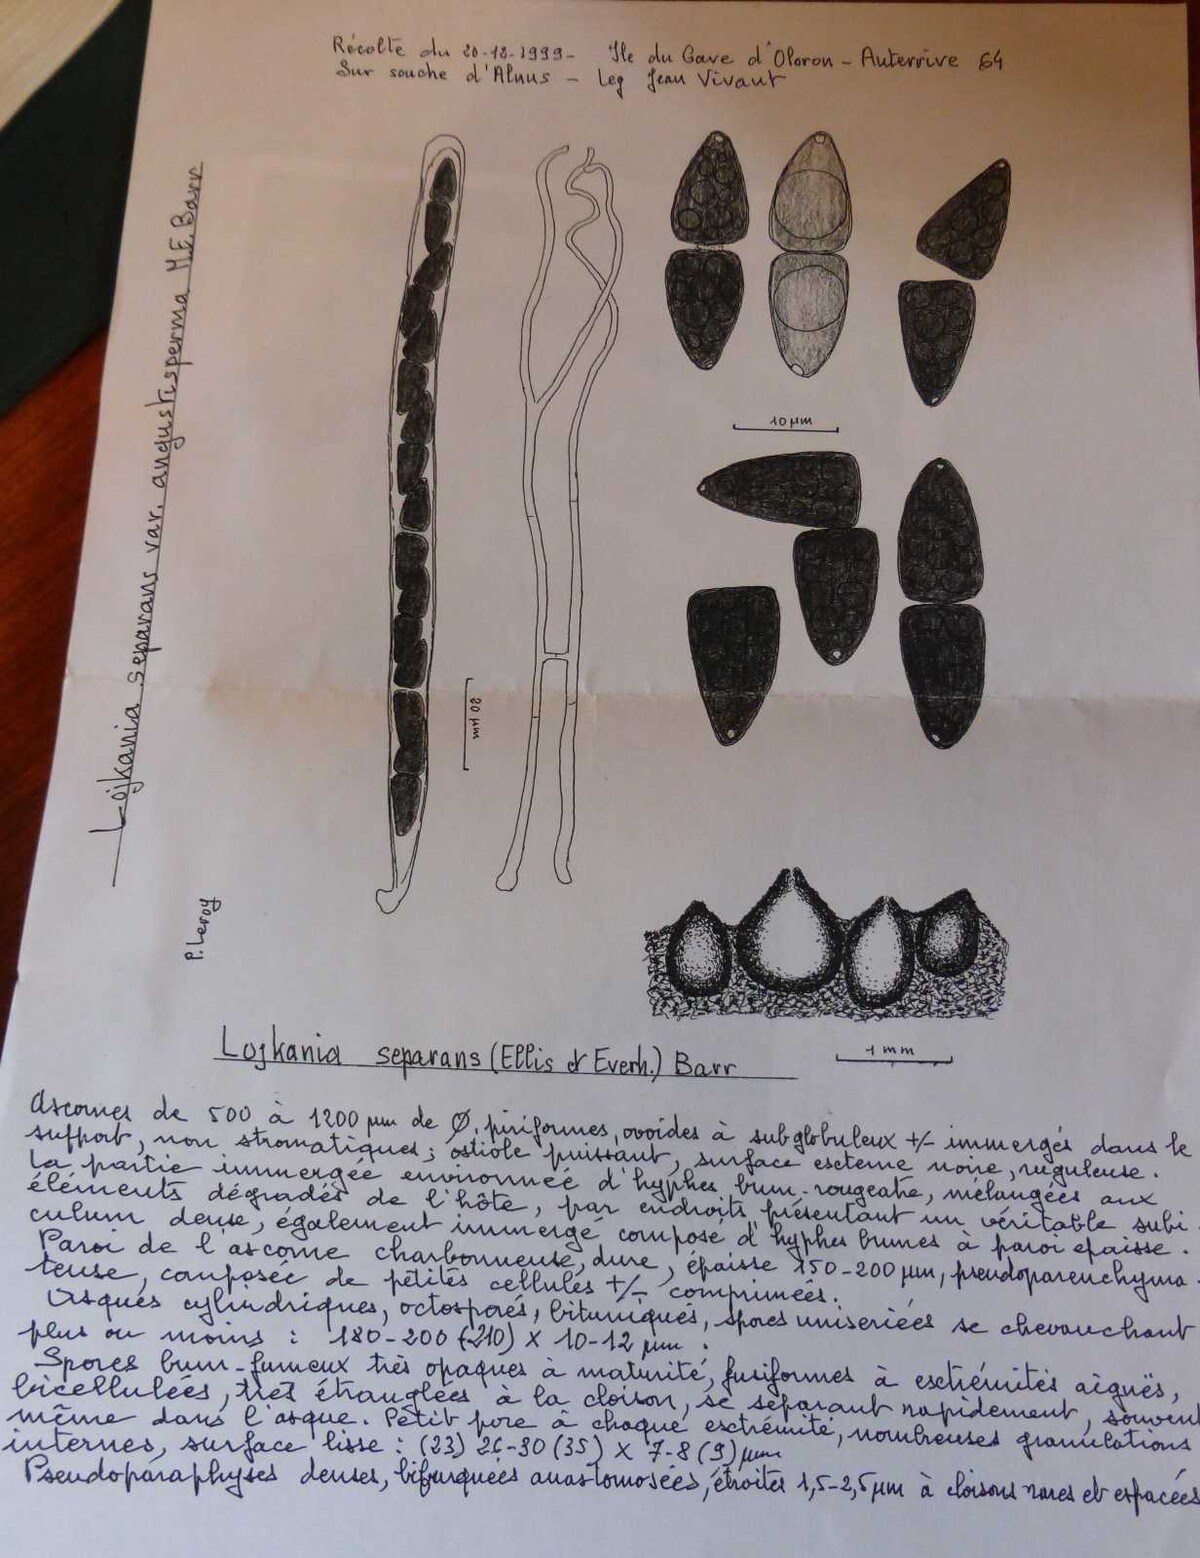 Récolte du 20-12-1999- Ile du Gave d'Oloron - Auterrive 64
Sur souche d'Alnus - Leg Jean Vivant
Lojkania separans var. angustisperma M.E. Barr
10 µm
20 µm
P. Leroy
1 mm
Lojkania separans (Ellis & Everh.) Barr
Ascomes de 500 à 1200 µm de Ø, piriformes, ovoïdes à subglobuleux +/- immergés dans le
support, non stromatiques; ostiole puissant, surface externe noire, ruguleuse.
La partie immergée environnée d'hyphes brun-rougeatre, mélangées aux
éléments dégradés de l'hôte, par endroits présentant un véritable subi-
culum dense, également immergé composé d'hyphes brunes à paroi epaisse.
Paroi de l'ascome charbonneuse, dure, épaisse 150-200 µm, pseudoparenchyma-
teuse, composée de pétites cellules +/- comprimées.
Asques cylindriques, octosporés, bituniqués, spores unisériées se chevauchant
plus ou moins : 180-200 (-210) X 10-12 µm.
Spores brun-fumeux très opaques à maturité, fusiformes à extrémités aiguës,
bicellulées, très étranglées à la cloison, se séparant rapidement, souvent
même dans l'asque. Petit pore à chaque extrémité, nombreuses granulations
internes, surface lisse : (23) 26-30 (35) X 7-8 (9) µm
Pseudoparaphyses denses, bifurquées anastomosées, étroites 1,5-2,5 µm à cloisons rares et espacées